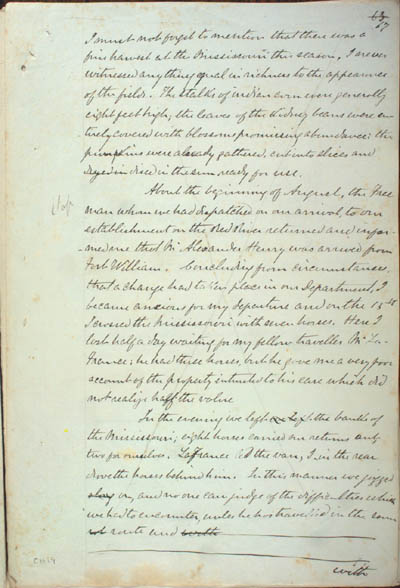 63
57
I must not forget to mention that there was a
fine harvest at the Missisouri this season, I never
witnessed any thing equal in richness to the appearance
of the fields. The stalks of indian corn were generally
eight feet high, the leaves of the kidney beans were en
tirely covered with blossoms promising abundance: the
pumpkins were already gathered, cut into slices and
dried in the sun, ready for use.
About the beginning of August, the free
man whom we had dispatched on our arrival to our
establishment on the Red River returned and infor
-med me that Mr Alexander Henry was arrived from
Fort William. Concluding from circumstances
that a change had taken place in our Department, I
became anxious for my departure and on the 15th
I crossed the Missisouri with seven horses. Here I
lost half a day waiting for my fellow traveller Mr La-
france: he had three horses, but he gave me a very poor
account of the property intrusted to his care which did
not realize half the value
In the evening we left the banks of
the Missisouri; eight horses carried our returns and
two for ourselves. Lafrance led the van, I in the rear
drove the horses before him. In this manner we jogged
along on, and no one can judge of the difficulties which
we had to encounter, unless he has travelled in the same
route and with
with